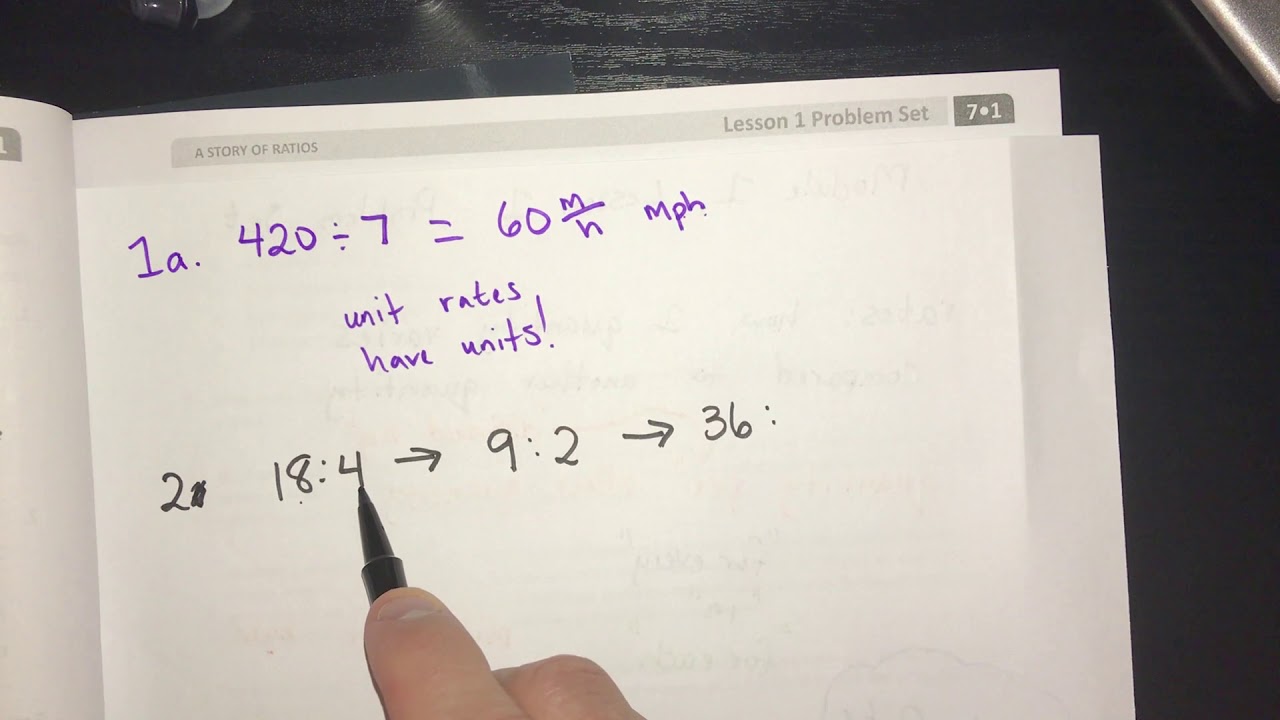 1
A STORY OF RATIOS
Lesson 1 Problem Set 7•1
1a. 420 ÷ 7 = 60 m/h mph
unit rates
have units!
2. 18:4 → 9:2 → 36: